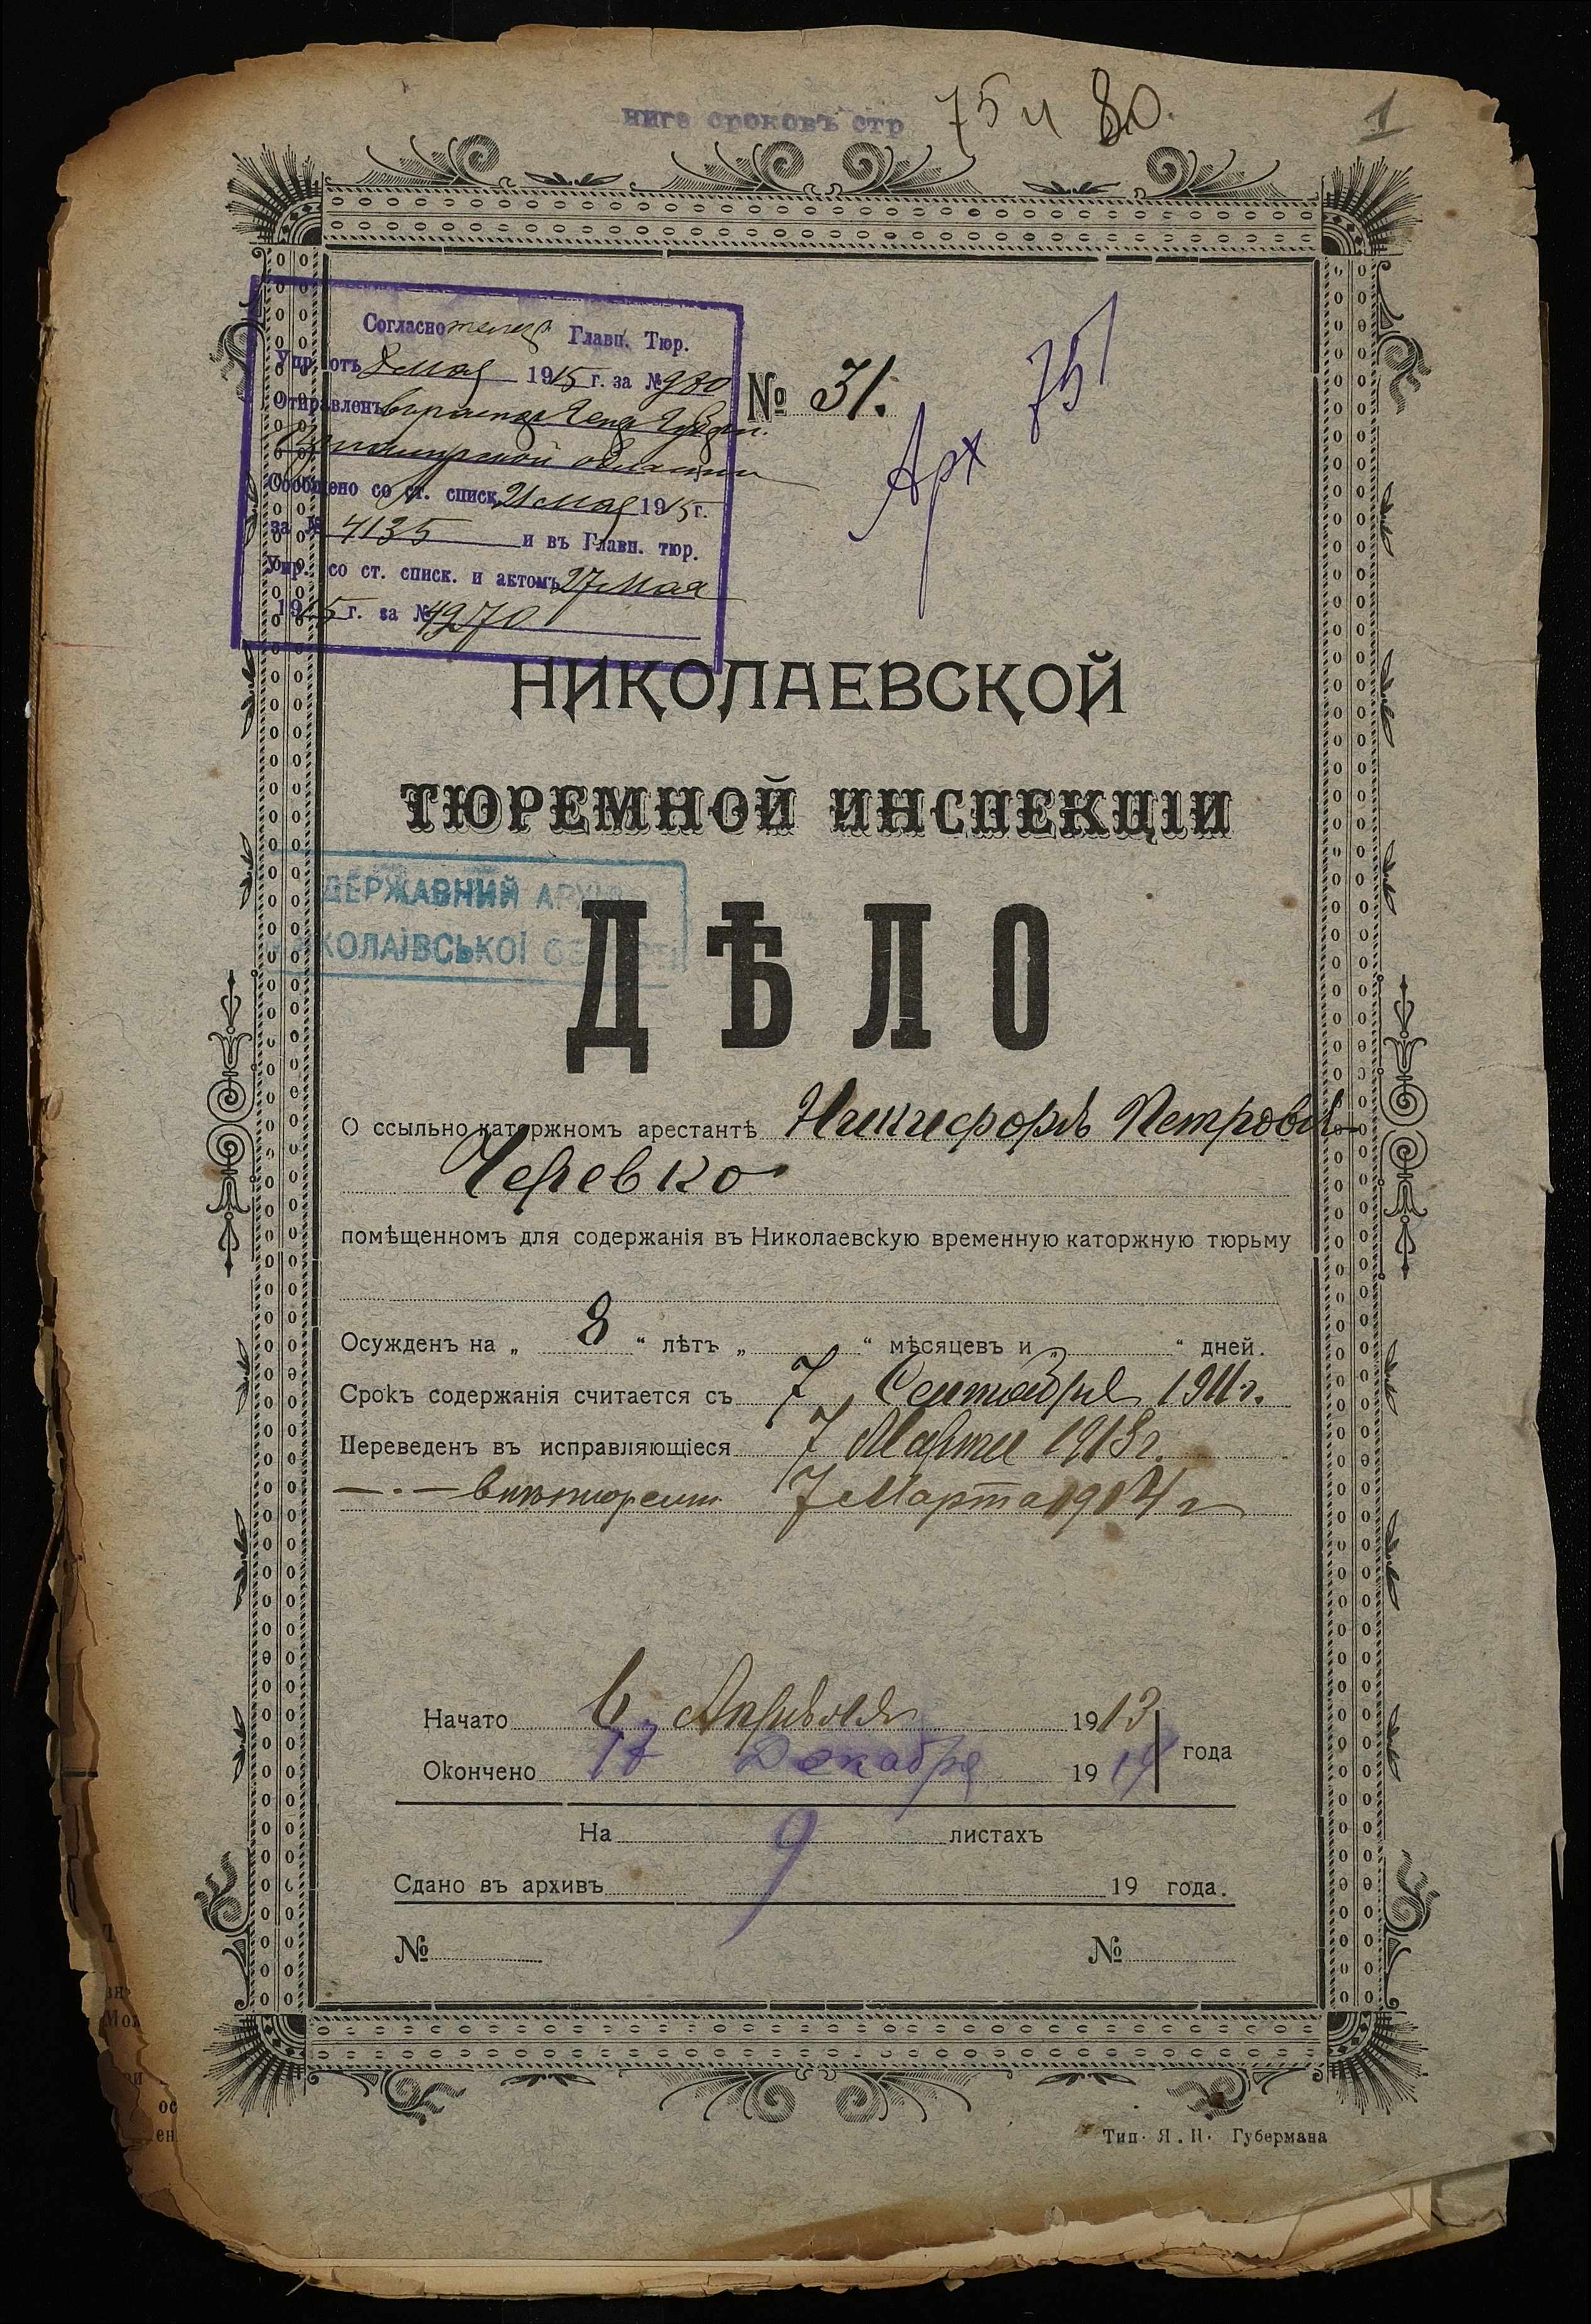 ниге сроковъ стр 75 и 80.
1
Согласно телегр. Главн. Тюр.
Упр. отъ 8 мая 1915 г. за № 970
Отправленъ
области
Сообщено со ст. списк. 21 мая 1915 г.
за № 4135 и въ Главн. тюр.
Упр. со ст. списк. и актомъ 27 мая
1915 г. за № 4270
№ 31.
Арх 75
НИКОЛАЕВСКОЙ
ТЮРЕМНОЙ ИНСПЕКЦІИ
ДЕРЖАВНИЙ АРХІВ
МИКОЛАЇВСЬКОЇ ОБЛАСТІ
ДѢЛО
О ссыльно каторжномъ арестантѣ Никифорѣ Петровѣ
Черевко
помѣщенномъ для содержанія въ Николаевскую временную каторжную тюрьму
Осужденъ на „ 8 “ лѣтъ „ “ мѣсяцевъ и „ “ дней.
Срокъ содержанія считается съ 7 Сентября 1911 г.
Переведенъ въ исправляющіеся 7 Марта 1913 г.
— · — внѣтюремн. 7 Марта 1914 г
Начато 6 Апрѣля 1913
Окончено 17 Декабря 1914 года
На 9 листахъ
Сдано въ архивъ 19 года.
№ №
Тип. Я. Н. Губермана